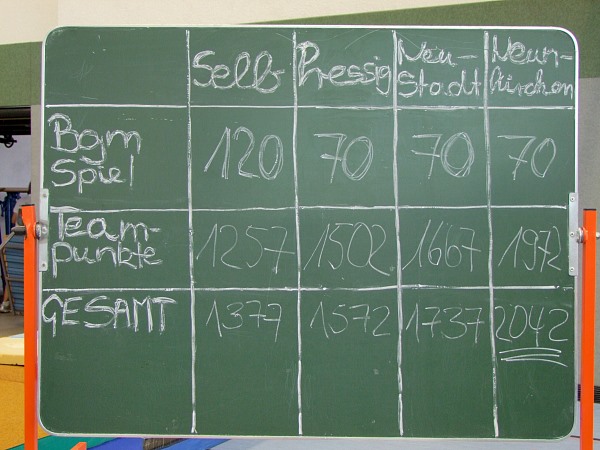 Selb Pressig Neu- Neun-
Stadt kirchen
Bgm 120 70 70 70
Spiel
Team- 1257 1502 1667 1972
punkte
GESAMT 1377 1572 1737 2042